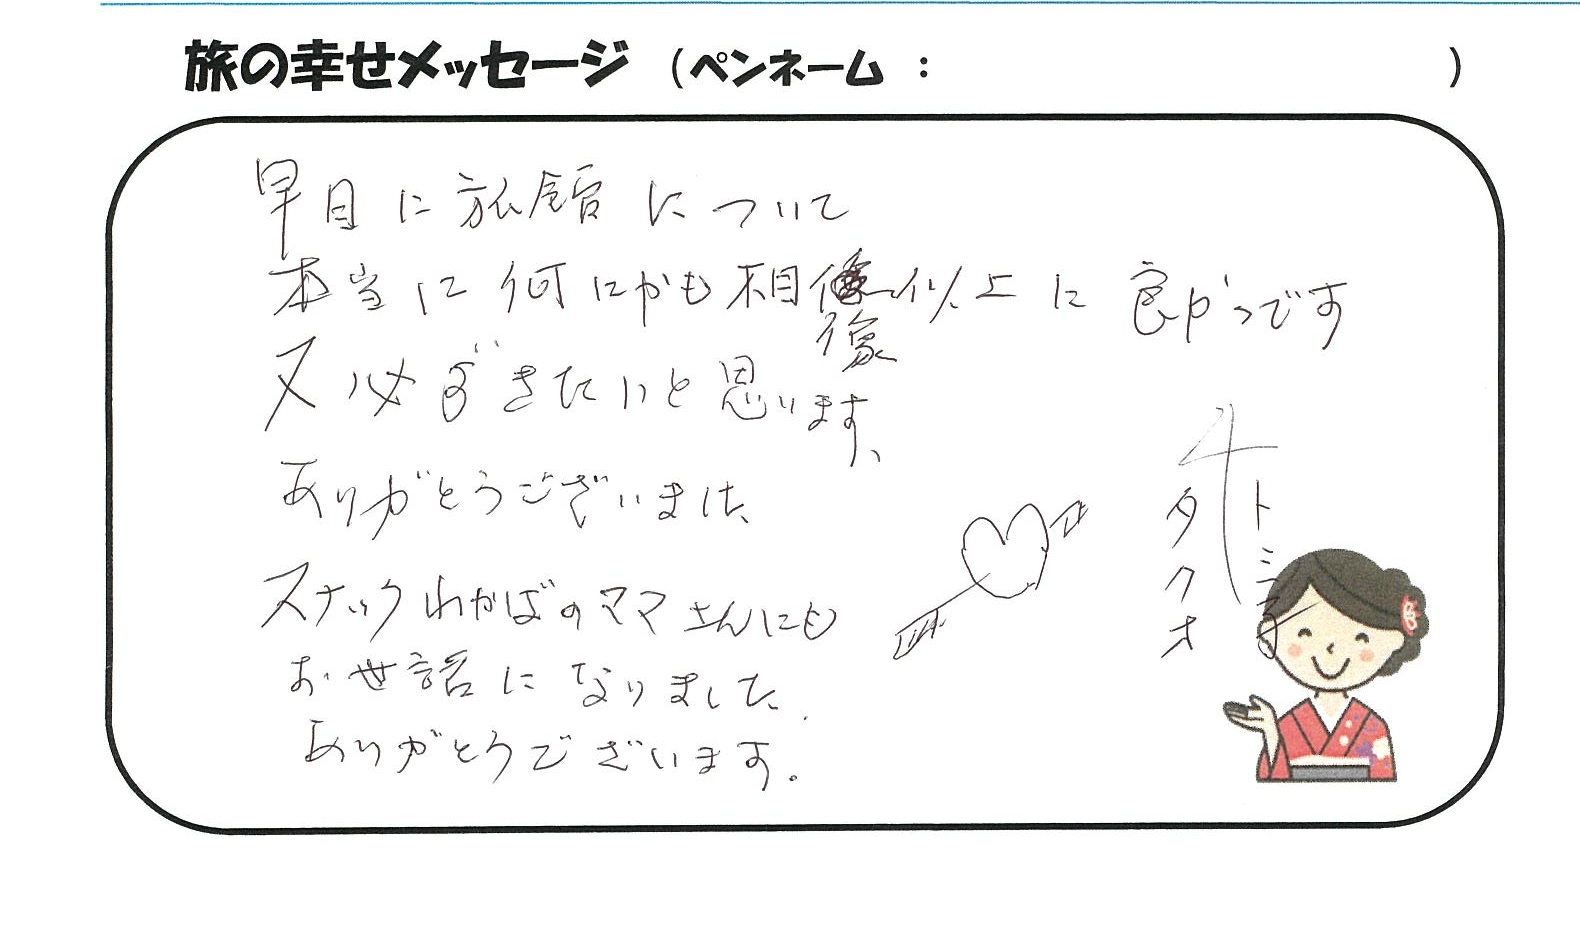 旅の幸せメッセージ (ペンネーム : )
早目に旅館について
本当に何にかも想像似上に良かっです
又必ずきたいと思います、
ありがとうございました、
スナックわかばのママさんにも
お世話になりました.
ありがとうございます.
タクオ
トミ子